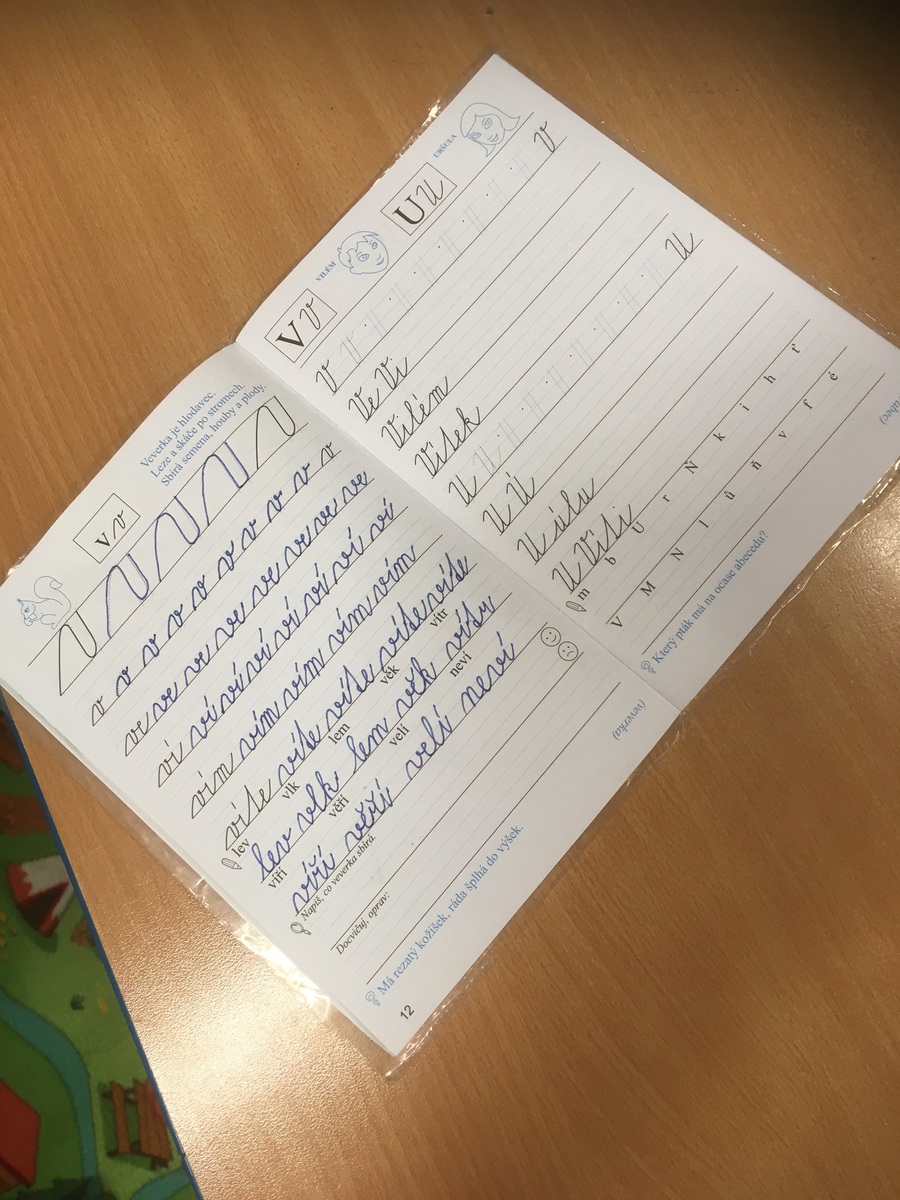 V v
Veverka je hlodavec.
Leze a skáče po stromech.
Sbírá semena, houby a plody.
v v v v v v v v v
ve ve ve ve ve ve ve ve
ví ví ví ví ví ví ví ví
vím vím vím vím vím
víše víše víše víše víše
lev vlk lem věk vítr
lev vlk lem věk
víří věří velí neví
víří věří velí neví
Napiš, co veverka sbírá.
Docvičuj, oprav:
Má rezatý kožíšek, ráda šplhá do výšek.
(veverka)
12
V v
VILÉM
U U
URŠULA
V V
Ve Vi
Vilém
Vítek
U U
U Ú
U úlu
U Víti
m b U r N k i h ť
V M N l ů ň v f é
Který pták má na ocase abecedu?